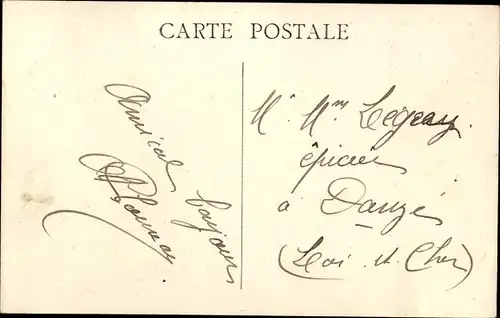 CARTE POSTALE
Amical bonjour
Mr Mme Legeay
épicier
à Danzé
(Loi. et Cher)